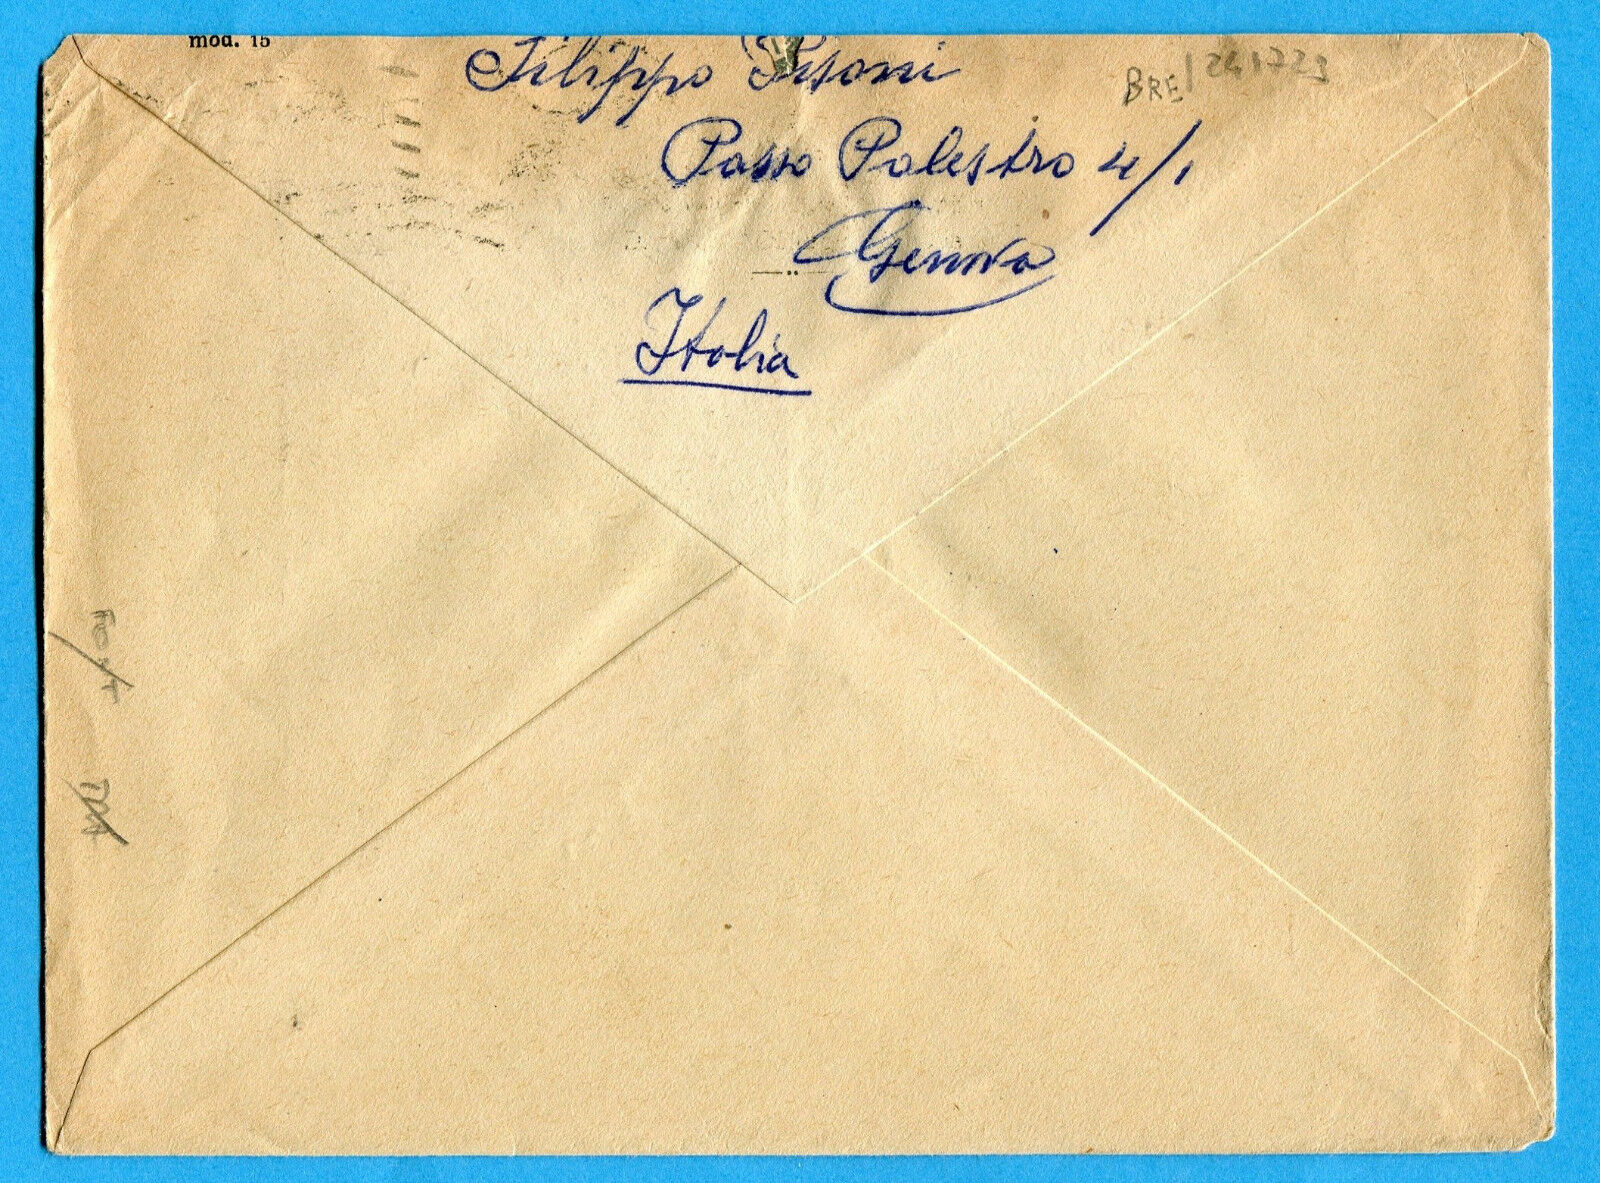 mod. 15
Filippo Pisoni
BRE/241723
Passo Palestro 4/1
Genova
Italia
FONT